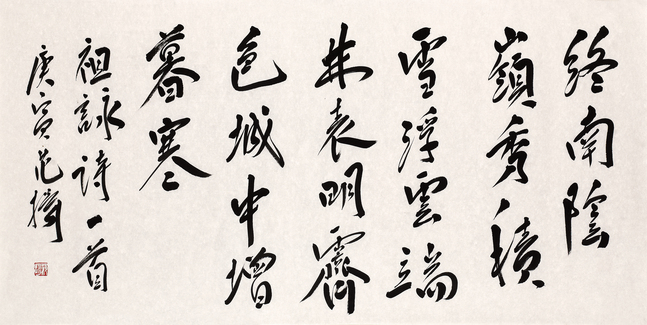 終南陰
嶺秀積
雪浮雲端
林表明霽
色城中增
暮寒
祖詠詩一首
庚寅范